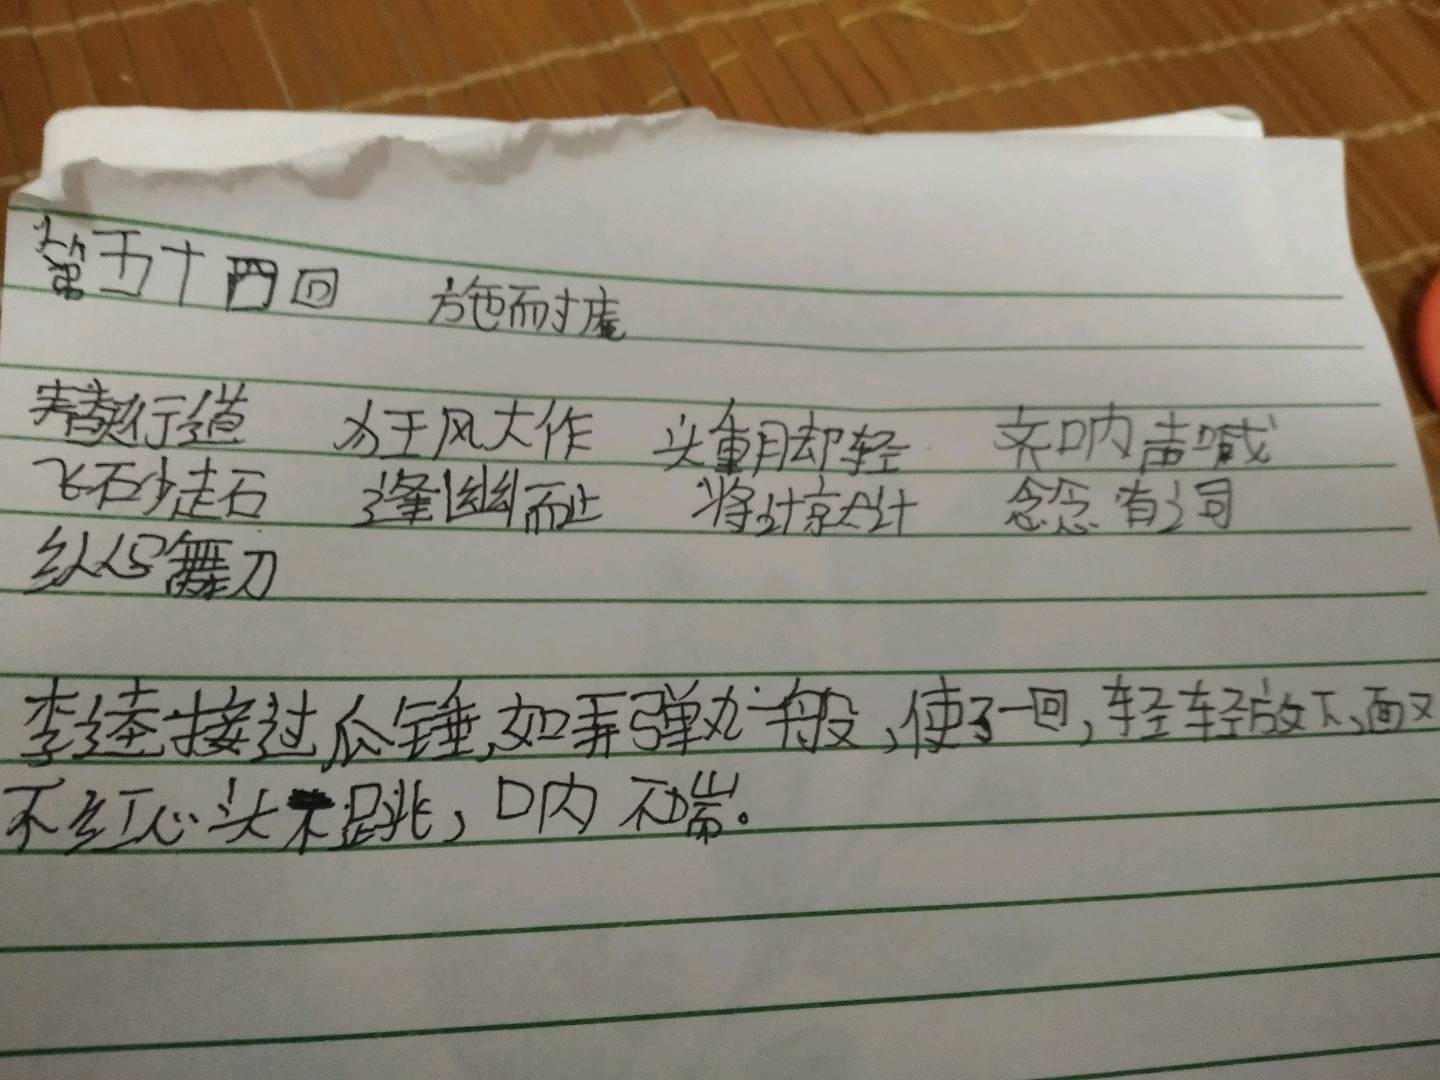 第五十四回 施耐庵
替天行道 狂风大作 头重脚轻 齐呐声喊
飞石少走石 逢幽而止 将计就计 念念有词
纵马舞刀
李逵接过瓜锤,如弄弹丸一般,使了一回,轻轻放下,面又
不红心头不跳,口内不喘。